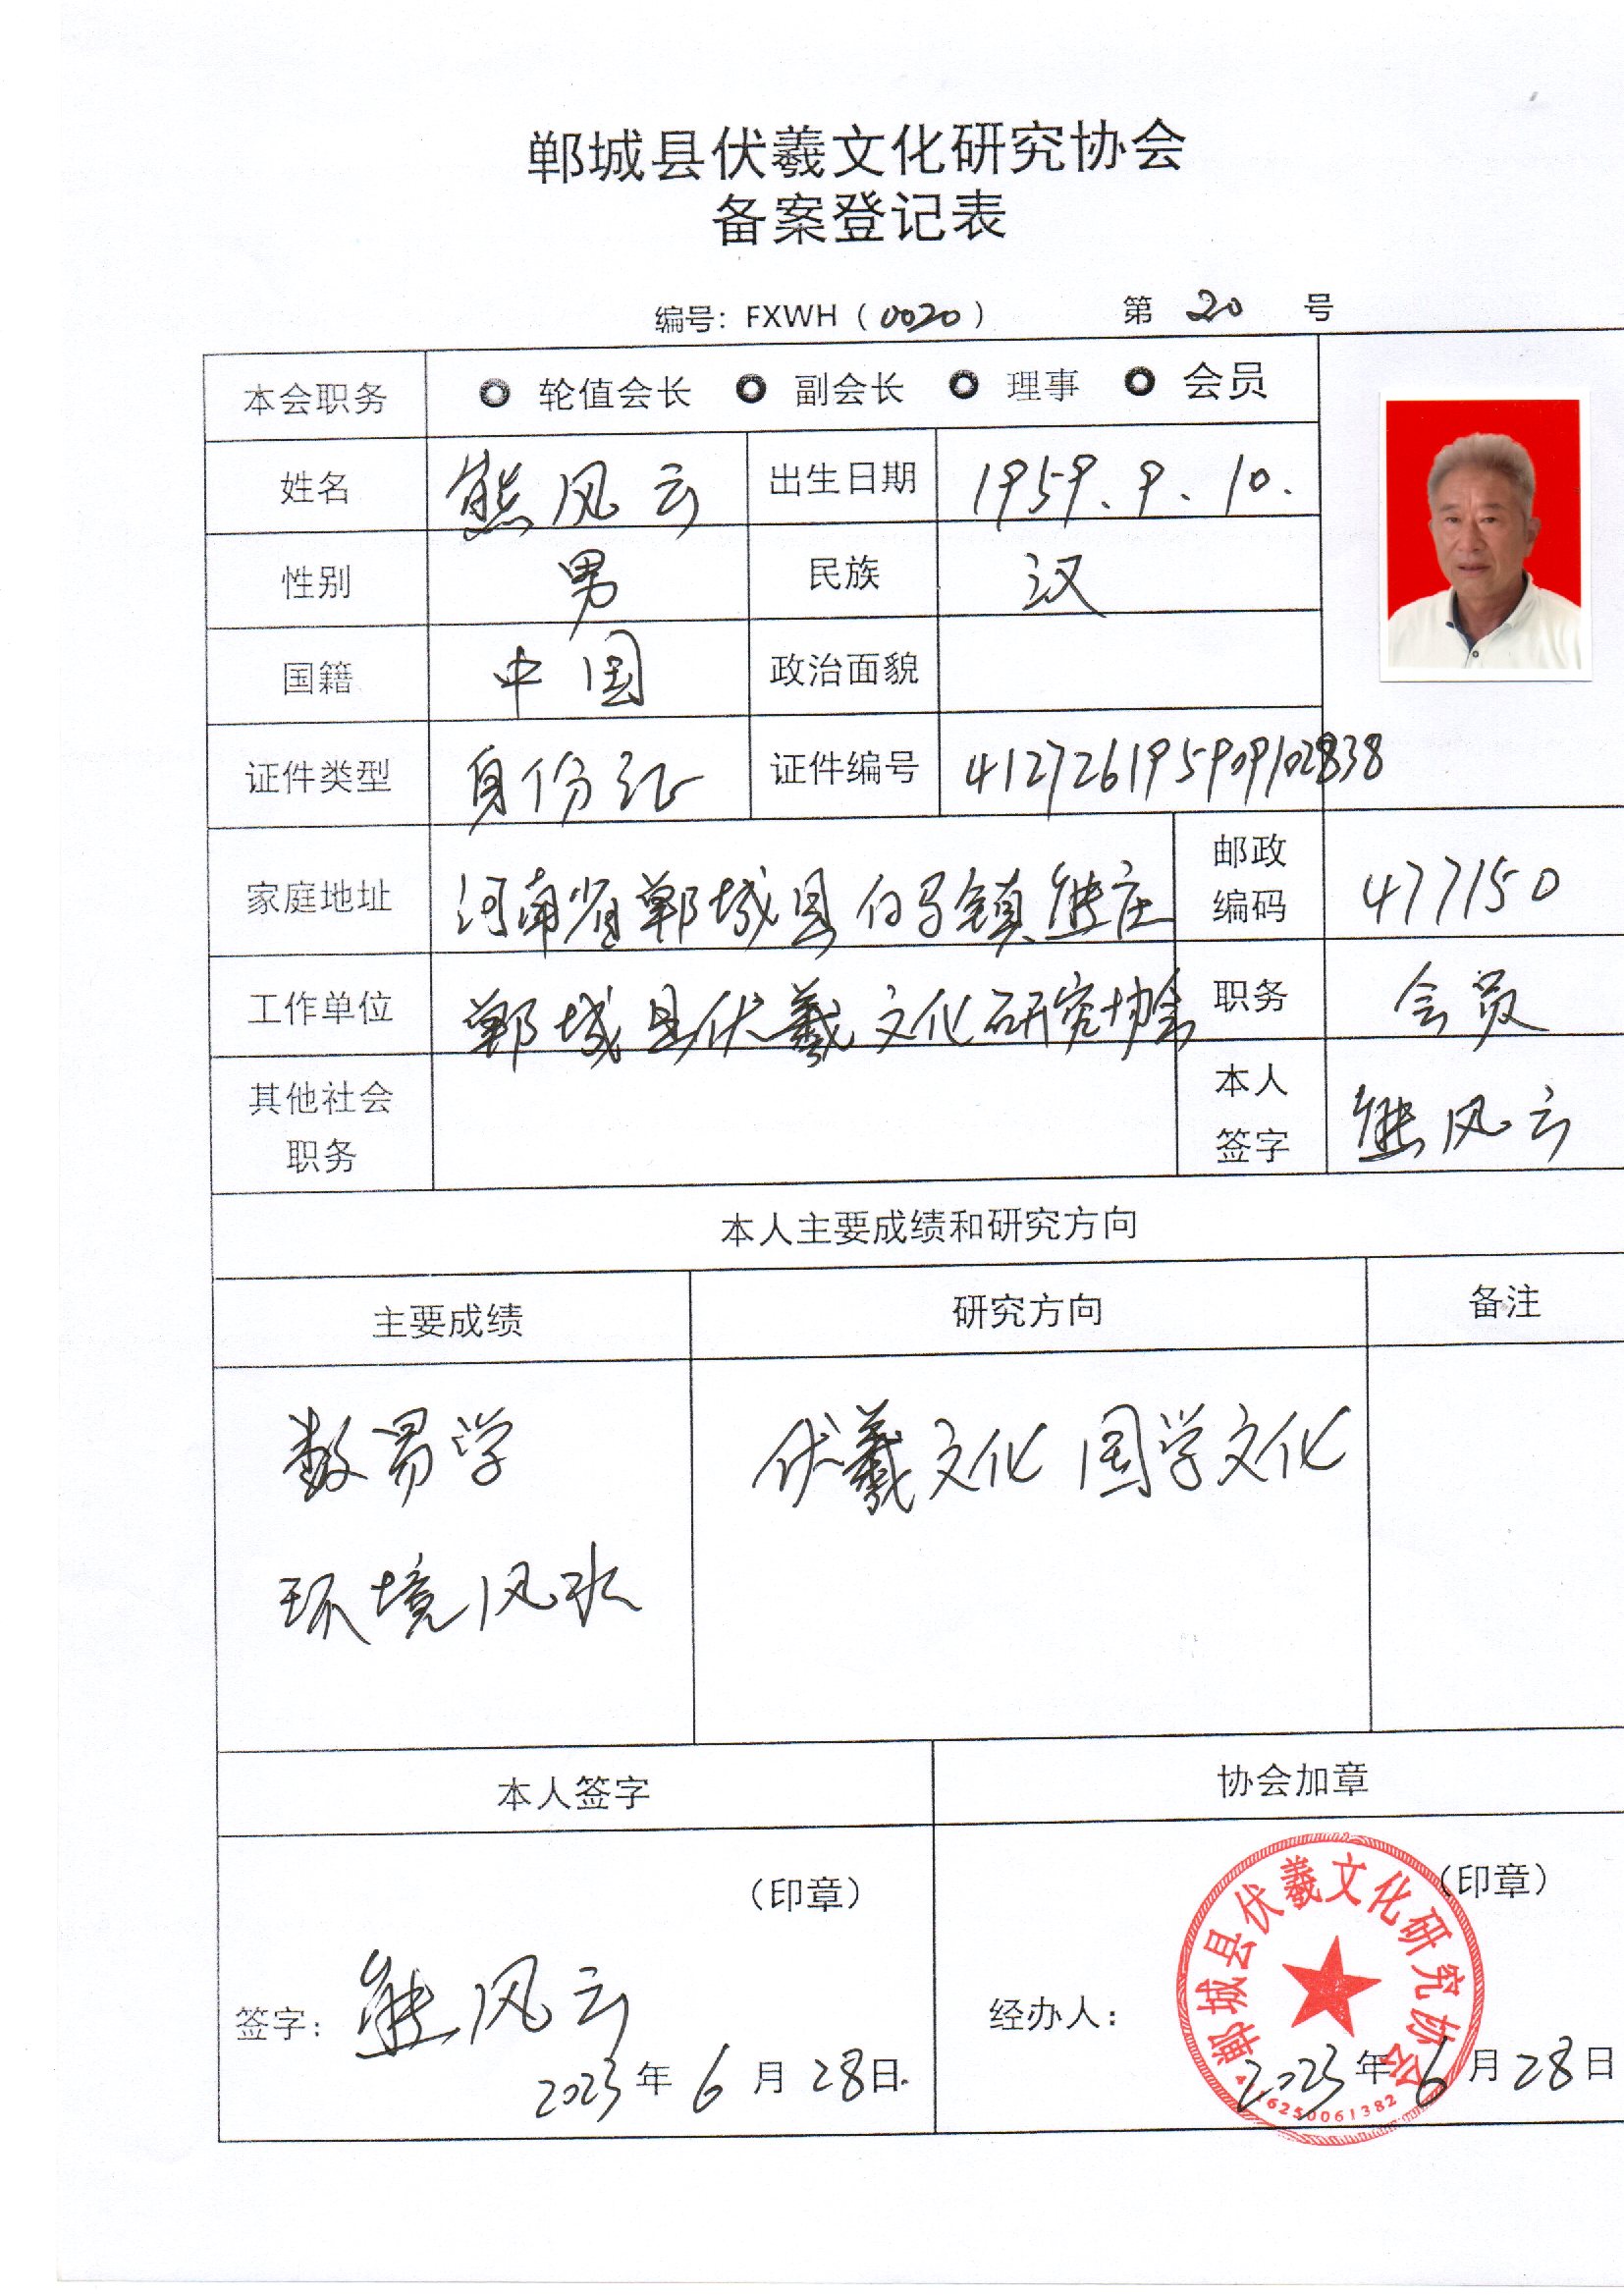 郸城县伏羲文化研究协会
备案登记表
编号：FXWH（0020） 第 20 号
本会职务 轮值会长 副会长 理事 会员
姓名 熊风云 出生日期 1959.9.10.
性别 男 民族 汉
国籍 中国 政治面貌
证件类型 身份证 证件编号 412726195909102838
家庭地址 河南省郸城县白马镇熊庄 邮政编码 477150
工作单位 郸城县伏羲文化研究协会 职务 会员
其他社会职务 本人签字 熊风云
本人主要成绩和研究方向
主要成绩 研究方向 备注
数易学 伏羲文化 国学文化
环境风水
本人签字 协会加章
（印章） （印章）
签字：熊风云 经办人：
2023年6月28日. 2023年6月28日
郸城县伏羲文化研究协会